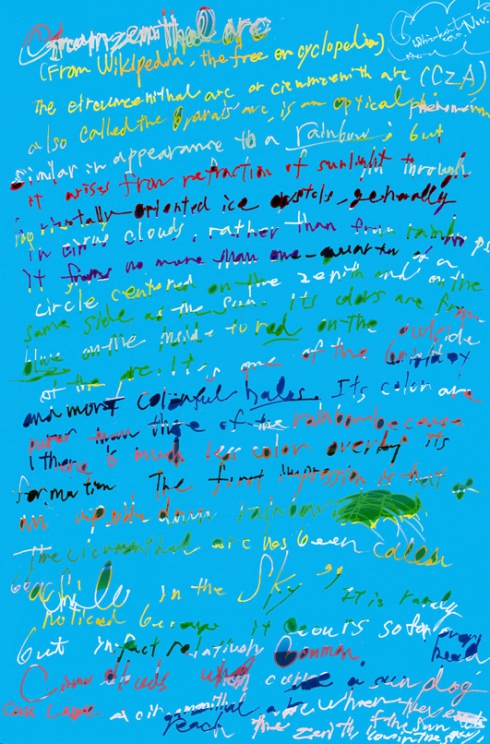 Circumzenithal arc
(From Wikipedia, the free encyclopedia)
The circumzenithal arc or circumzenith arc (CZA)
also called the Bravais arc, is an optical phenomenon
similar in appearance to a rainbow, but
it arises from refraction of sunlight through
horizontally-oriented ice crystals, generally
in cirrus clouds, rather than from
It forms no more than one-quarter of a
circle centered on the zenith and on the
same side as the sun. Its colors are from
blue on the inside to red on the outside
of the arc. It is one of the brightest
and most colorful halos. Its color are
purer than those of the rainbow because
there is much less color overlap its
formation The first impression is that of
an upside down rainbow.
The has been called
a smile in the Sky" It is rarely
noticed because it occurs so far over head
but in fact relatively Common.
Cirrus clouds a sun dog
can cause a arc when
reach the zenith if the sun